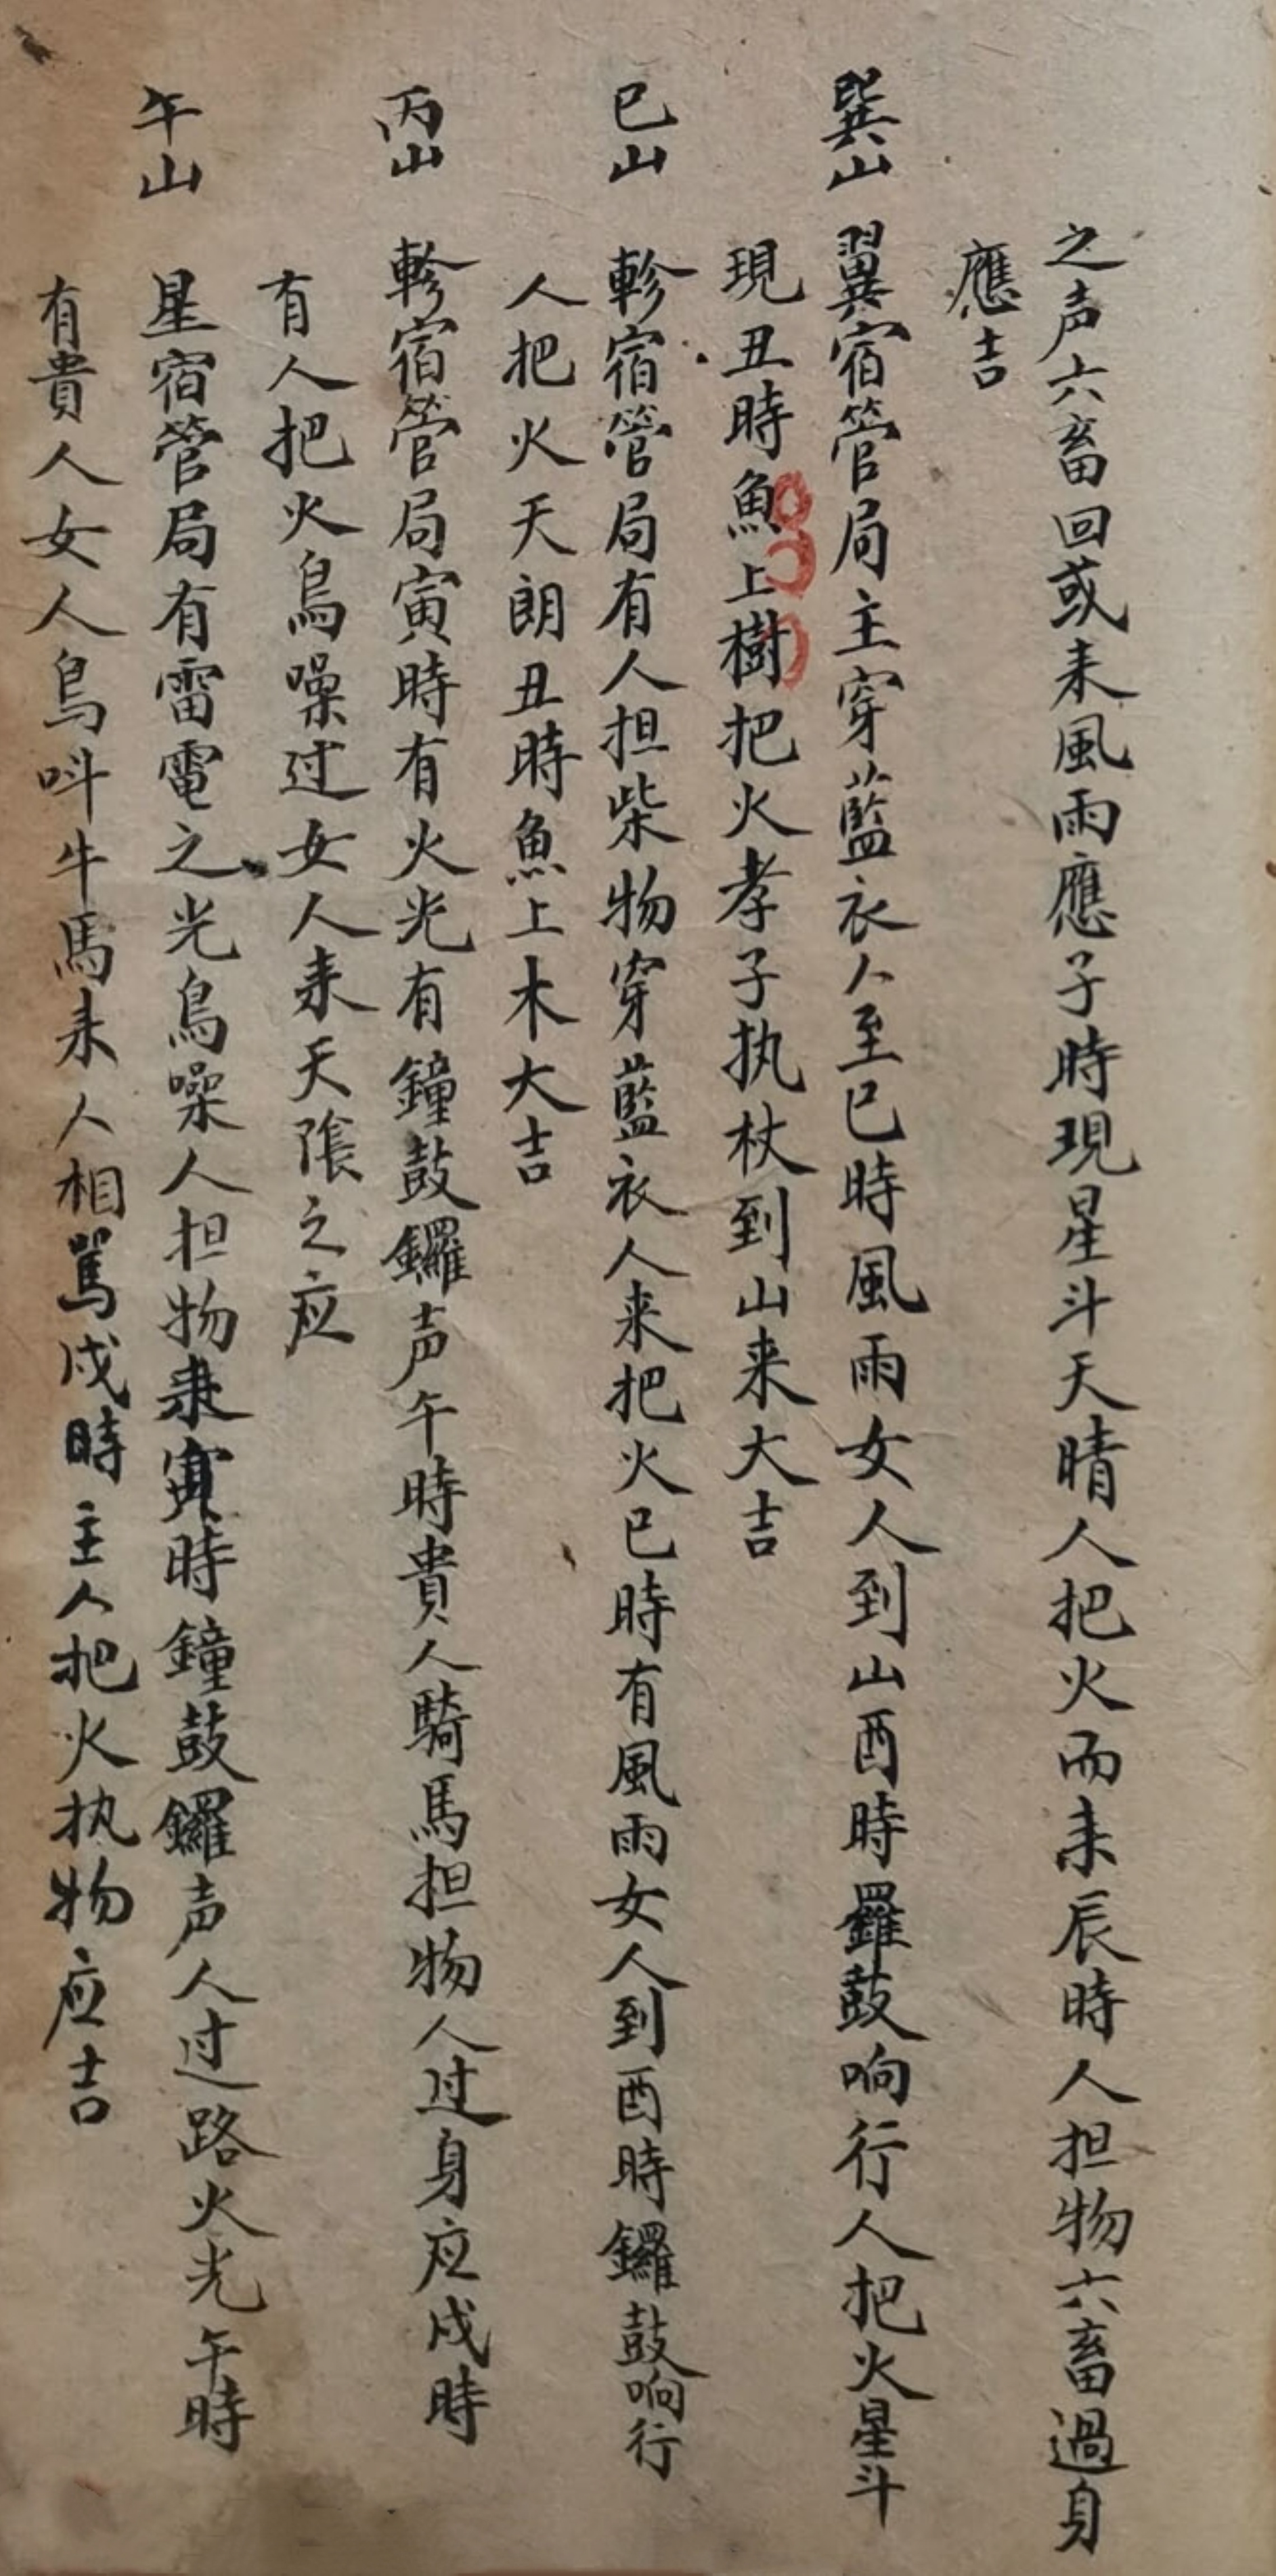 之声六畜回或来風雨應子時現星斗天晴人把火而来辰時人担物六畜過身
應吉
巽山 翼宿管局主穿藍衣人至巳時風雨女人到山酉時鑼鼓响行人把火星斗
現丑時魚上樹把火孝子执杖到山来大吉
巳山 軫宿管局有人担柴物穿藍衣人来把火巳時有風雨女人到酉時鑼鼓响行
人把火天朗丑時魚上木大吉
丙山 軫宿管局寅時有火光有鐘鼓鑼声午時貴人騎馬担物人过身应戌時
有人把火鳥噪过女人来天隂之应
午山 星宿管局有雷電之光鳥噪人担物来寅時鐘鼓鑼声人过路火光午時
有貴人女人鳥呌牛馬来人相罵戌時主人把火执物应吉